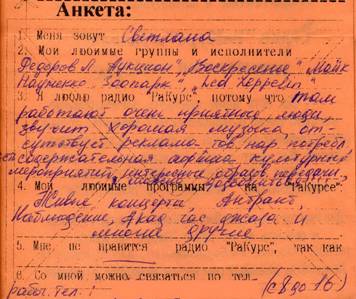 Анкета:
1. Меня зовут Светлана
2. Мои любимые группы и исполнители
Федоров Л. "Аукцион", "Воскресение", Майк
Науменко "Зоопарк", "Led Zeppelin"
3. Я люблю радио "Ракурс", потому что там
работают очень приятные люди,
звучит хорошая музыка, от-
сутствует реклама тов. нар. потребл.
содержательная афиша культурных
мероприятий, интересные образов. передачи,
4. Мои любимые программы на "Ракурсе"
Живые концерты, Антракт,
Наблюдение, Акад. час джаза и
многие другие
5. Мне не нравится радио "Ракурс", так как
6. Со мной можно связаться по тел.
рабоч. тел.: (с 8 до 16)